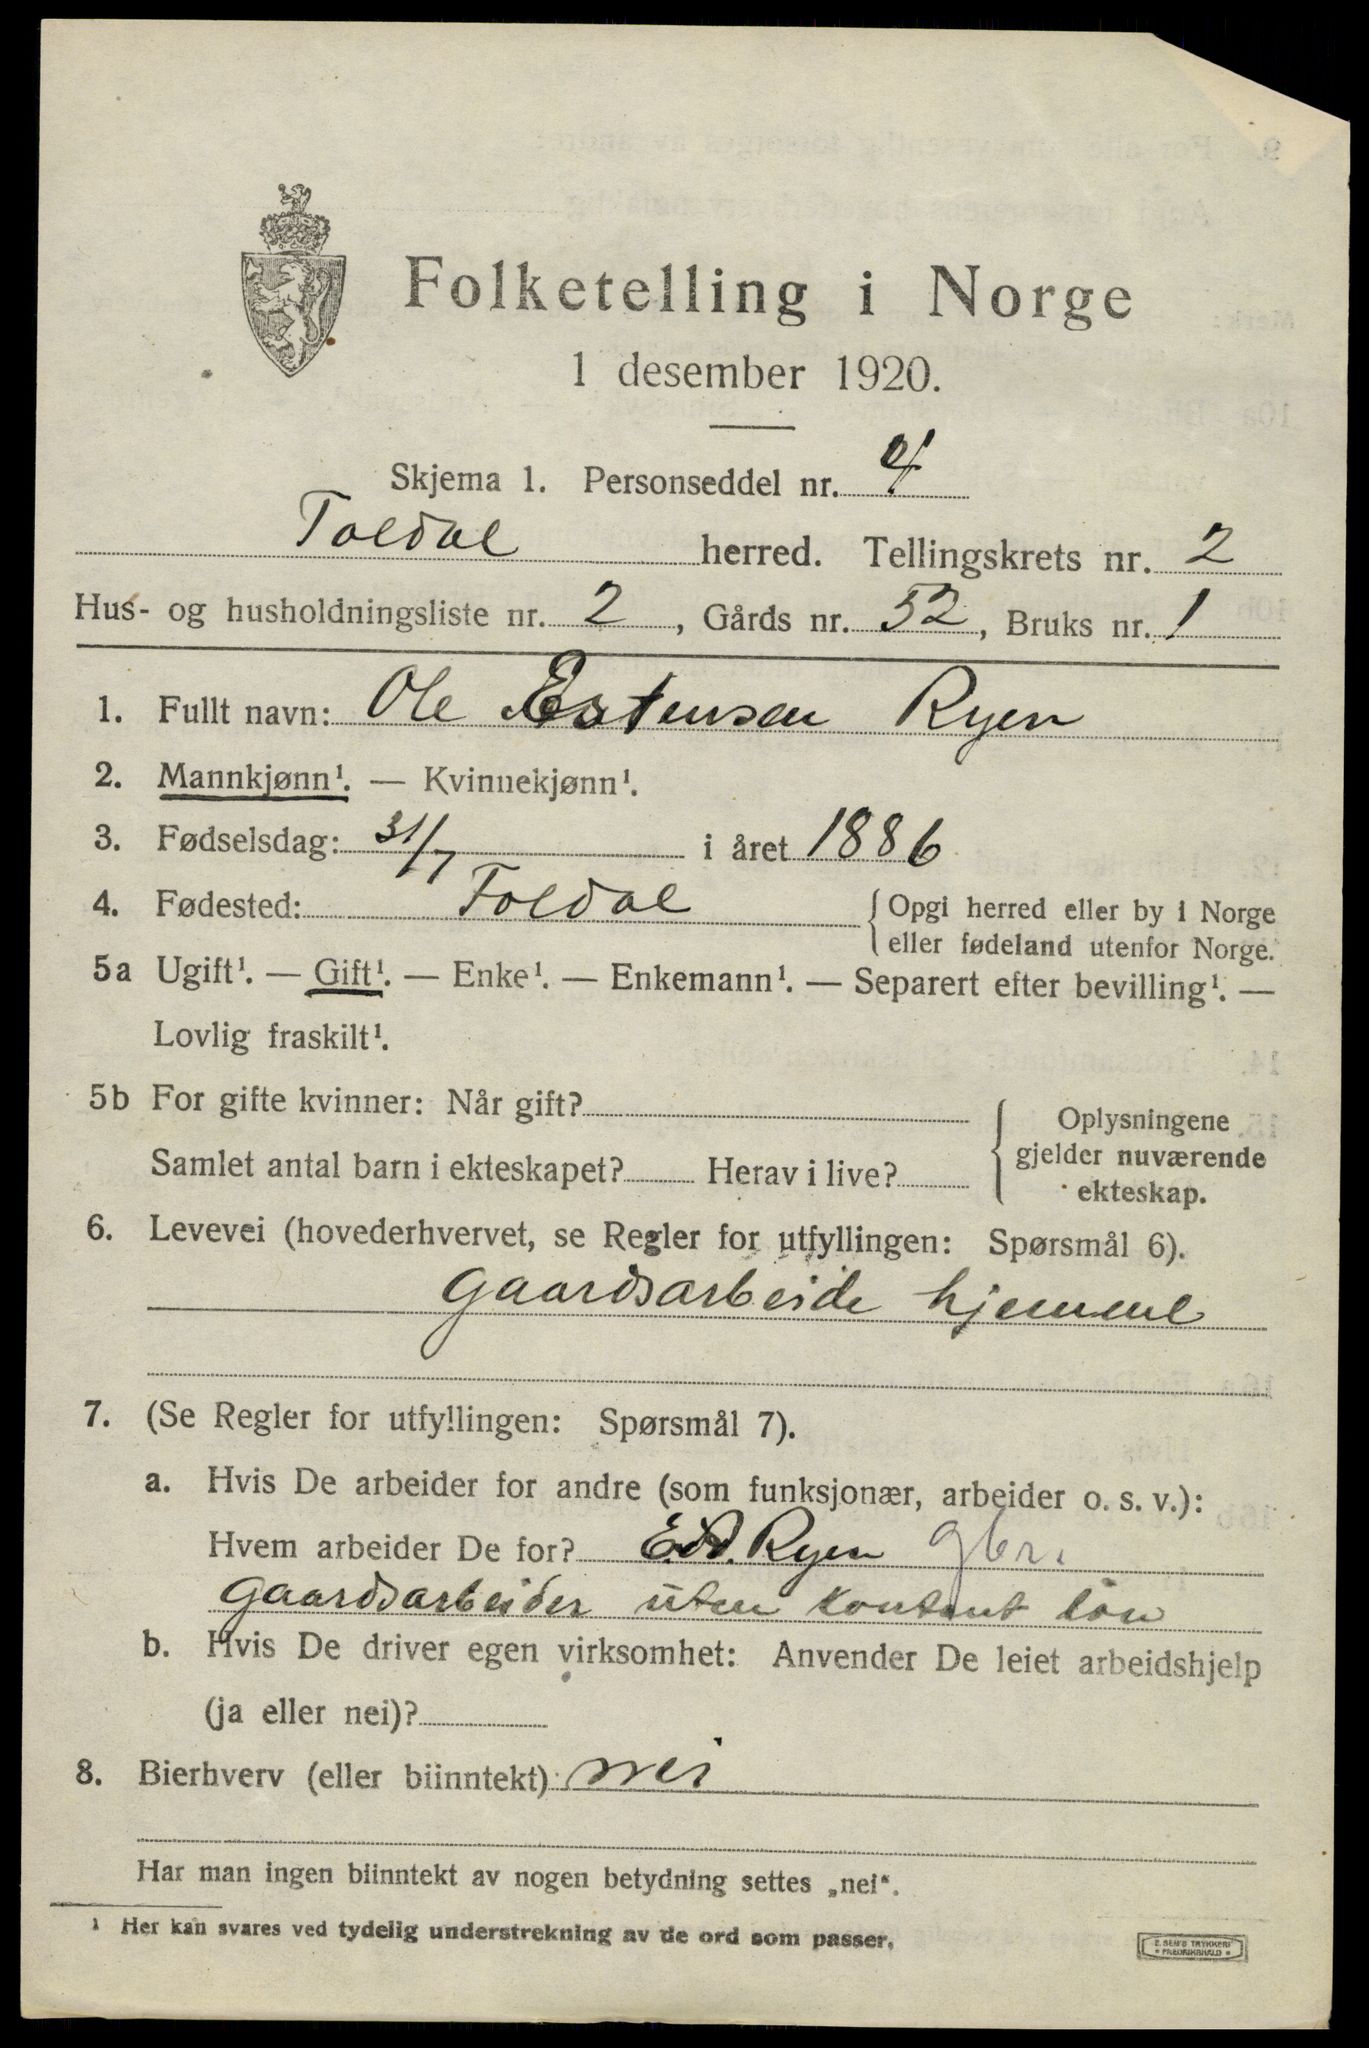 Folketelling i Norge
1 desember 1920.
Skjema 1. Personseddel nr. 4
Foldal herred. Tellingskrets nr. 2
Hus- og husholdningsliste nr. 2, Gårds nr. 52, Bruks nr. 1
1. Fullt navn: Ole Estensen Ryen
2. Mannkjønn¹. — Kvinnekjønn¹.
3. Fødselsdag: 31/7 i året 1886
4. Fødested: Foldal { Opgi herred eller by i Norge
eller fødeland utenfor Norge.
5a Ugift¹. — Gift¹. — Enke¹. — Enkemann¹. — Separert efter bevilling¹. —
Lovlig fraskilt¹.
5b For gifte kvinner: Når gift? { Oplysningene
gjelder nuværende
ekteskap.
Samlet antal barn i ekteskapet? Herav i live?
6. Levevei (hovederhvervet, se Regler for utfyllingen: Spørsmål 6).
Gaardsarbeide hjemme
7. (Se Regler for utfyllingen: Spørsmål 7).
a. Hvis De arbeider for andre (som funksjonær, arbeider o. s. v.):
Hvem arbeider De for? Ryen gbr.
Gaardsarbeider uten kontant løn
b. Hvis De driver egen virksomhet: Anvender De leiet arbeidshjelp
(ja eller nei)?
8. Bierhverv (eller biinntekt) nei
Har man ingen biinntekt av nogen betydning settes „nei“.
¹ Her kan svares ved tydelig understrekning av de ord som passer.
E. SEM'S TRYKKERI
* FREDRIKSHALD *